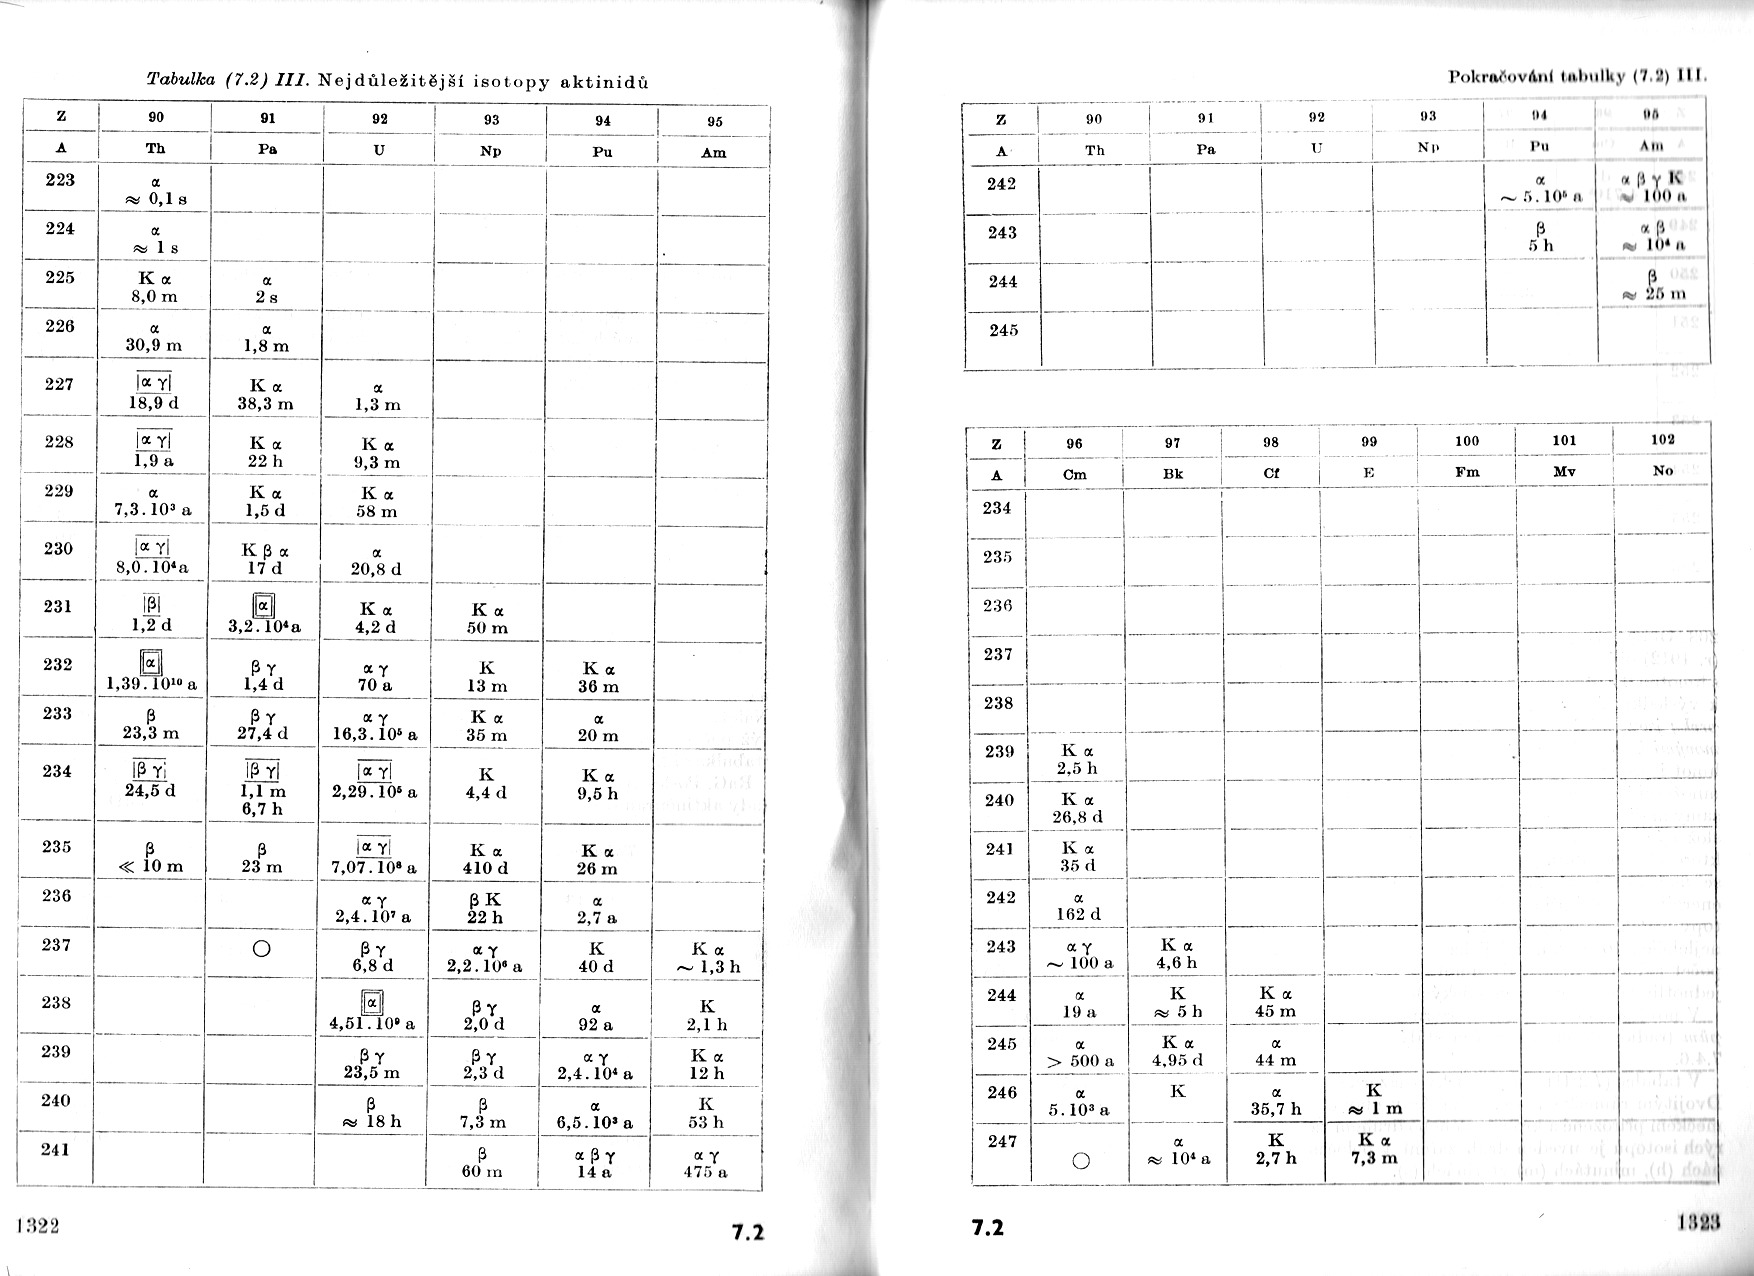 Tabulka (7.2) III. Nejdůležitější isotopy aktinidů
Z 90 91 92 93 94 95
A Th Pa U Np Pu Am
223 α
≈ 0,1 s
224 α
≈ 1 s
225 K α α
8,0 m 2 s
226 α α
30,9 m 1,8 m
227 α γ K α α
18,9 d 38,3 m 1,3 m
228 α γ K α K α
1,9 a 22 h 9,3 m
229 α K α K α
7,3.10³ a 1,5 d 58 m
230 α γ K β α α
8,0.10⁴a 17 d 20,8 d
231 β α K α K α
1,2 d 3,2.10⁴a 4,2 d 50 m
232 α β γ α γ K K α
1,39.10¹⁰ a 1,4 d 70 a 13 m 36 m
233 β β γ α γ K α α
23,3 m 27,4 d 16,3.10⁵ a 35 m 20 m
234 β γ β γ α γ K K α
24,5 d 1,1 m 2,29.10⁵ a 4,4 d 9,5 h
6,7 h
235 β β α γ K α K α
≪ 10 m 23 m 7,07.10⁸ a 410 d 26 m
236 α γ β K α
2,4.10⁷ a 22 h 2,7 a
237 ○ β γ α γ K K α
6,8 d 2,2.10⁶ a 40 d ~ 1,3 h
238 α β γ α K
4,51.10⁹ a 2,0 d 92 a 2,1 h
239 β γ β γ α γ K α
23,5 m 2,3 d 2,4.10⁴ a 12 h
240 β β α K
≈ 18 h 7,3 m 6,5.10³ a 53 h
241 β α β γ α γ
60 m 14 a 475 a
1322
7.2
Pokračování tabulky (7.2) III.
Z 90 91 92 93 94 95
A Th Pa U Np Pu Am
242 α α β γ K
~ 5.10⁵ a ~ 100 a
243 β α β
5 h ≈ 10⁴ a
244 β
≈ 25 m
245
Z 96 97 98 99 100 101 102
A Cm Bk Cf E Fm Mv No
234
235
236
237
238
239 K α
2,5 h
240 K α
26,8 d
241 K α
35 d
242 α
162 d
243 α γ K α
~ 100 a 4,6 h
244 α K K α
19 a ≈ 5 h 45 m
245 α K α α
> 500 a 4,95 d 44 m
246 α K α K
5.10³ a 35,7 h ≈ 1 m
247 ○ α K K α
≈ 10⁴ a 2,7 h 7,3 m
7.2
1323